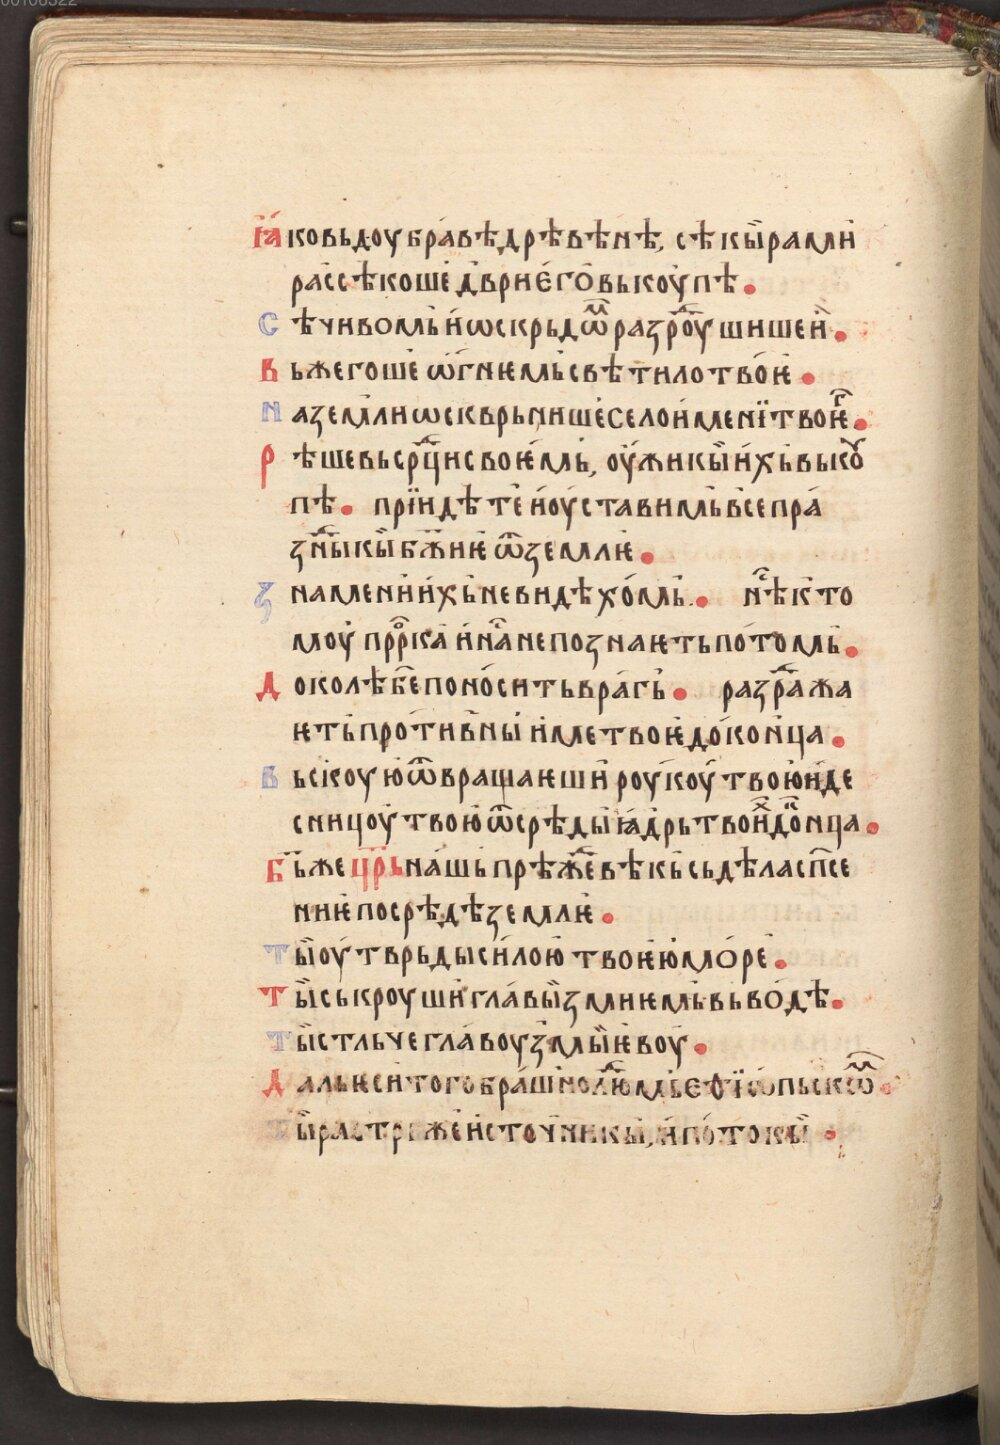 00106322
Ꙗ҆ковь доубра́вѣ дрѣ́вѣнѣ, сѣкы̏рами
ра́ссѣкоше две́ри є҆го̀ вькоу́пѣ.
Сѣчивомь и҆ ѡ҆скрьдѡⷨ разроⷹшише и҆̀.
Вьжегоше ѡ҆́гнѥмь свѣтило твоѥ̀.
На земли ѡ҆скврьнише село и҆мені твоѥⷢ.
Рѣше вь срⷣци своѥ́мь, оу҆́жикы и҆́хь вькоу
пѣ. прїидѣте и҆ оу҆ставимь все пра́
зⷣныкы бж҃иѥ ѿ земли.
Знаменїи и҆́хь не видѣхо́мь. нⷭѣ к то
моу̀ прⷪ҇рка и҆ на́ⷭ не познаѥть по́томь.
Доколѣ б҃е поно́сить вра́гь. раздраⷤжа
ѥть проти́вны́и име твоѥ до ко́нца.
Вьскоую ѿвращаѥши роу́коу̀ твою̀ и҆ де
сницоу̀ твою̀ ѿ срѣды ꙗ҆́дрь твоиⷯ до конца.
Бь҃же цр҃ь на́шь прѣжⷣе вѣкь сьдѣла сп҃се
ниѥ посрѣдѣ землѥ̀.
Ты̏ оу҆тврьды си́лою твоѥ́ю мо́ре.
Ты̏ ськроуши гла́вы̏ змиѥмь вь во́дѣ.
Ты̏ стльче гла́воу змы̏ѥвоу̀.
Даль ѥси того бра́шно люⷣмь єѳїѡпьскѡⷨ.
Ты̏ растрьже и҆сточ́никы, и҆ по́токы̏.